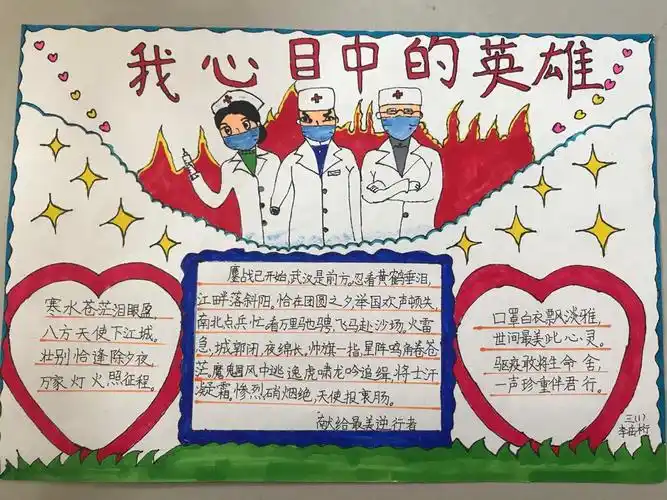 我心目中的英雄
寒水苍茫泪眼盈
八方天使下江城。
壮别恰逢除夕夜,
万家灯火照征程。
鏖战已开始,武汉是前方。忍看黄鹤垂泪,
江畔落斜阳。恰在团圆之夕,举国欢声顿失,
南北点兵忙。看万里驰骋,飞马赴沙场。火雷
急,城郭闭,夜绵长。帅旗一指,星阵鸣角春苍
茫。魔魍风中逃逸,虎啸龙吟追缉,将士汗
凝霜。惨烈硝烟绝,天使报衷肠。
献给最美逆行者
口罩白衣飘淡雅,
世间最美此心灵。
驱疫敢将生命舍,
一声珍重伴君行。
三(1)
李岳桁